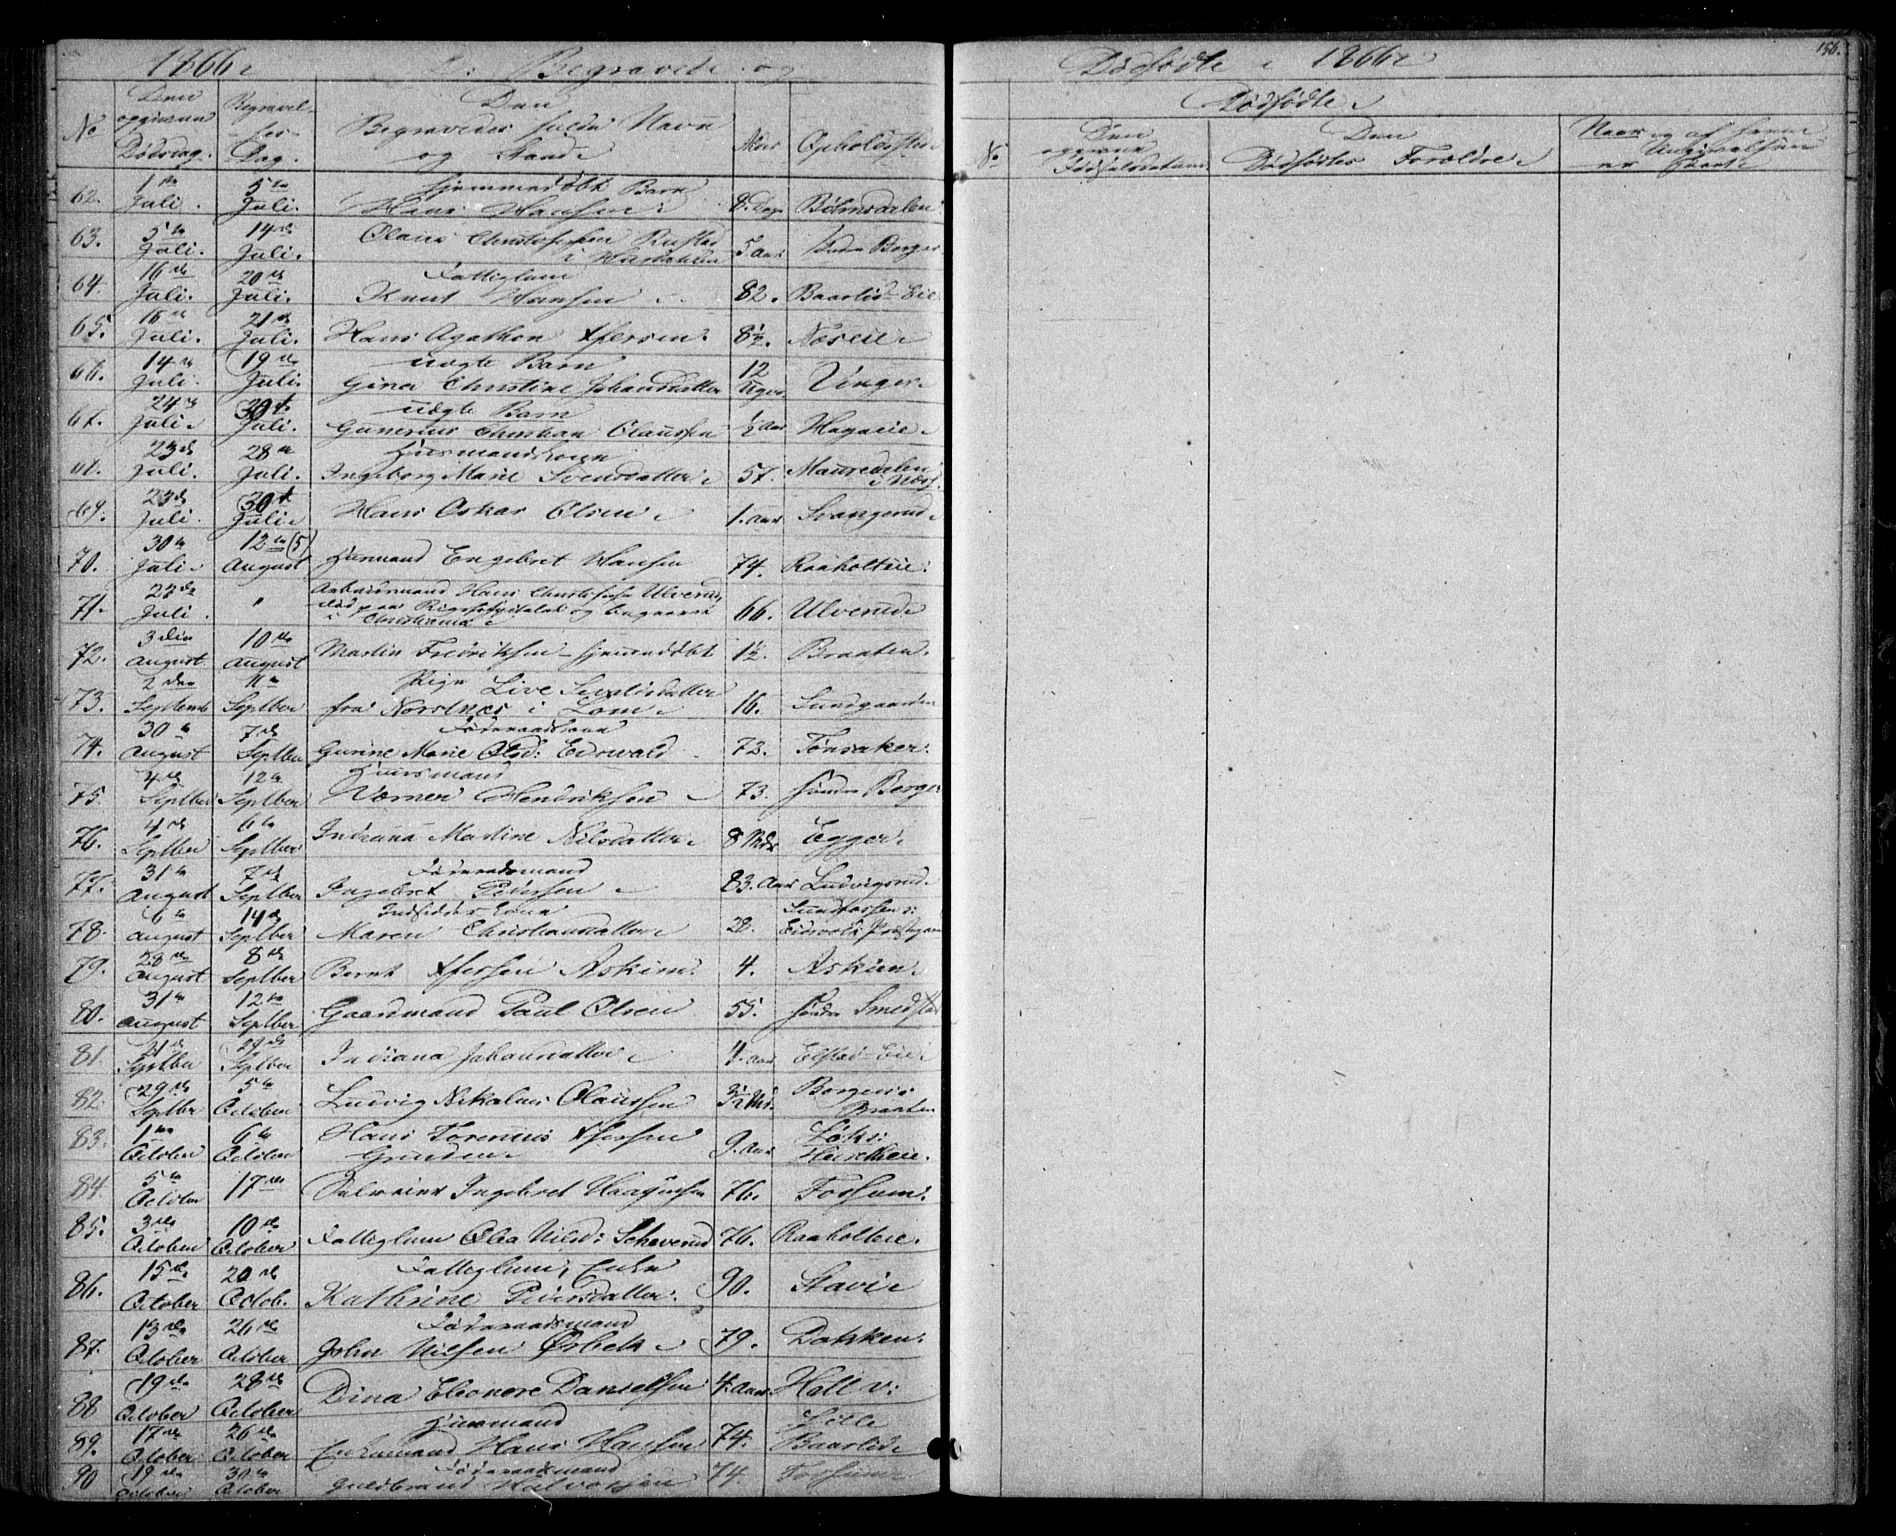 1866. Begravede og
No
Den opgivne Dødsdag.
Begravel-ses-Dag.
Den Begravedes fulde Navn og Stand.
Alder
Opholdssted
62. 1ste Juli. 5te Juli. Hjemmedøbt Barn
Hans Hansen. 8. Dage
63. 5te Juli. 14de Juli. Olaus Christophersen Rustad
i Hurdalen 5 Aar Berger
64. 16de Juli. 20de Juli. Fattiglem
Knut Hansen. 82. Baarlid-Eie
65. 16de Juli. 21de Juli. Hans Agathon Ifersen. 8½. Næseie
66. 14de Juli. 19de Juli. uægte Barn
Gina Christine Johansdatter 12 Uger Vinger.
67. 24de Juli. 30te Juli. uægte Barn
Gunerius Christian Olaussen ½ Aar Hagaeie.
68. 23de Juli. 28de Juli. Huusmandskone
Ingeborg Marie Svensdatter. 57.
69. 23de Juli. 30te Juli. Hans Oskar Olsen. 1. Aar Svangerud.
70. 30te Juli. 12te (5) August Huusmand Engebret Hansen 74. Raaholteie.
71. 22de Juli. " Arbeidsmand Hans Christophersen Ulverud,
død paa Rigshospitalet og begravet
i Christiania. 66. Ulverud.
72. 3die August 10de August Martin Fredriksen - hjemmedøbt 1½. Braaten.
73. 2den Septemb 11te Septber Pige Live Syverdsdatter
fra Norstnæs i Lom. 16. Sundgaarden
74. 30te August 7de Septber Føderaadskone
Gurine Marie Olsd: Eidsvold 72. Tønsaker.
75. 4de Septber 12te Septber Huusmand
Værner Hendriksen 73. søndre Berger
76. 4de Septber 6te Septber Indiana Martine Nilsdatter. 8 Mdr Egger.
77. 31te August 7de Septber Føderaadsmand
Ingebret Pedersen 83. Aar Ludvigsrud.
78. 6te August 14de Septber Indsidder Kone
Maren Christiansdatter. 28. Sundtossen:
Eidsvolds Præstegaard
79. 28de August 8de Septber Bernt Ifersen Askim. 4. Askim.
80. 31te August 12te Septber Gaardmand Paul Olsen 55. søndre Smedstad
81. 21de Septber 29de Septber Indiana Johansdatter. 4. Aar Elstad-Eie
82. 29de Septber 5te October Ludvig Nikolai Olaussen 3½ Mdr. Borgens
Braaten
83. 1ste October 6te October Hans Torenius Ifersen
Grinden. 9. Aar
84. 5te October 17de Ingebret Haagensen 76. Fossum.
85. 3die October 10de October Fattiglem Olea Nilsd: Scheverud 76. Raaholteie.
86. 15de October 20de Octob. Fattiglem, Enke
Kathrine Pedersdatter. 90. Stavi
87. 13de October 26de October Føderaadsmand
John Nilsen Ørbek 79. Dokken.
88 19de October 28de October Dina Eleonore Danielsen 4. Aar Holt v:
89. 17de October 26de October Huusmand
Enkemand Hans Hansen 74. Lille
Baarlid.
90 19de October 30te October Føderaadsmand
Guldbrand Halvorsen 74. Fossum
156.
Dødfødte i 1866.
Dødfødte.
No.
Den opgivne Fødselsdatum.
Den Dødfødtes Forældre.
Naar og af hvem Anmeldelsen er skeet.